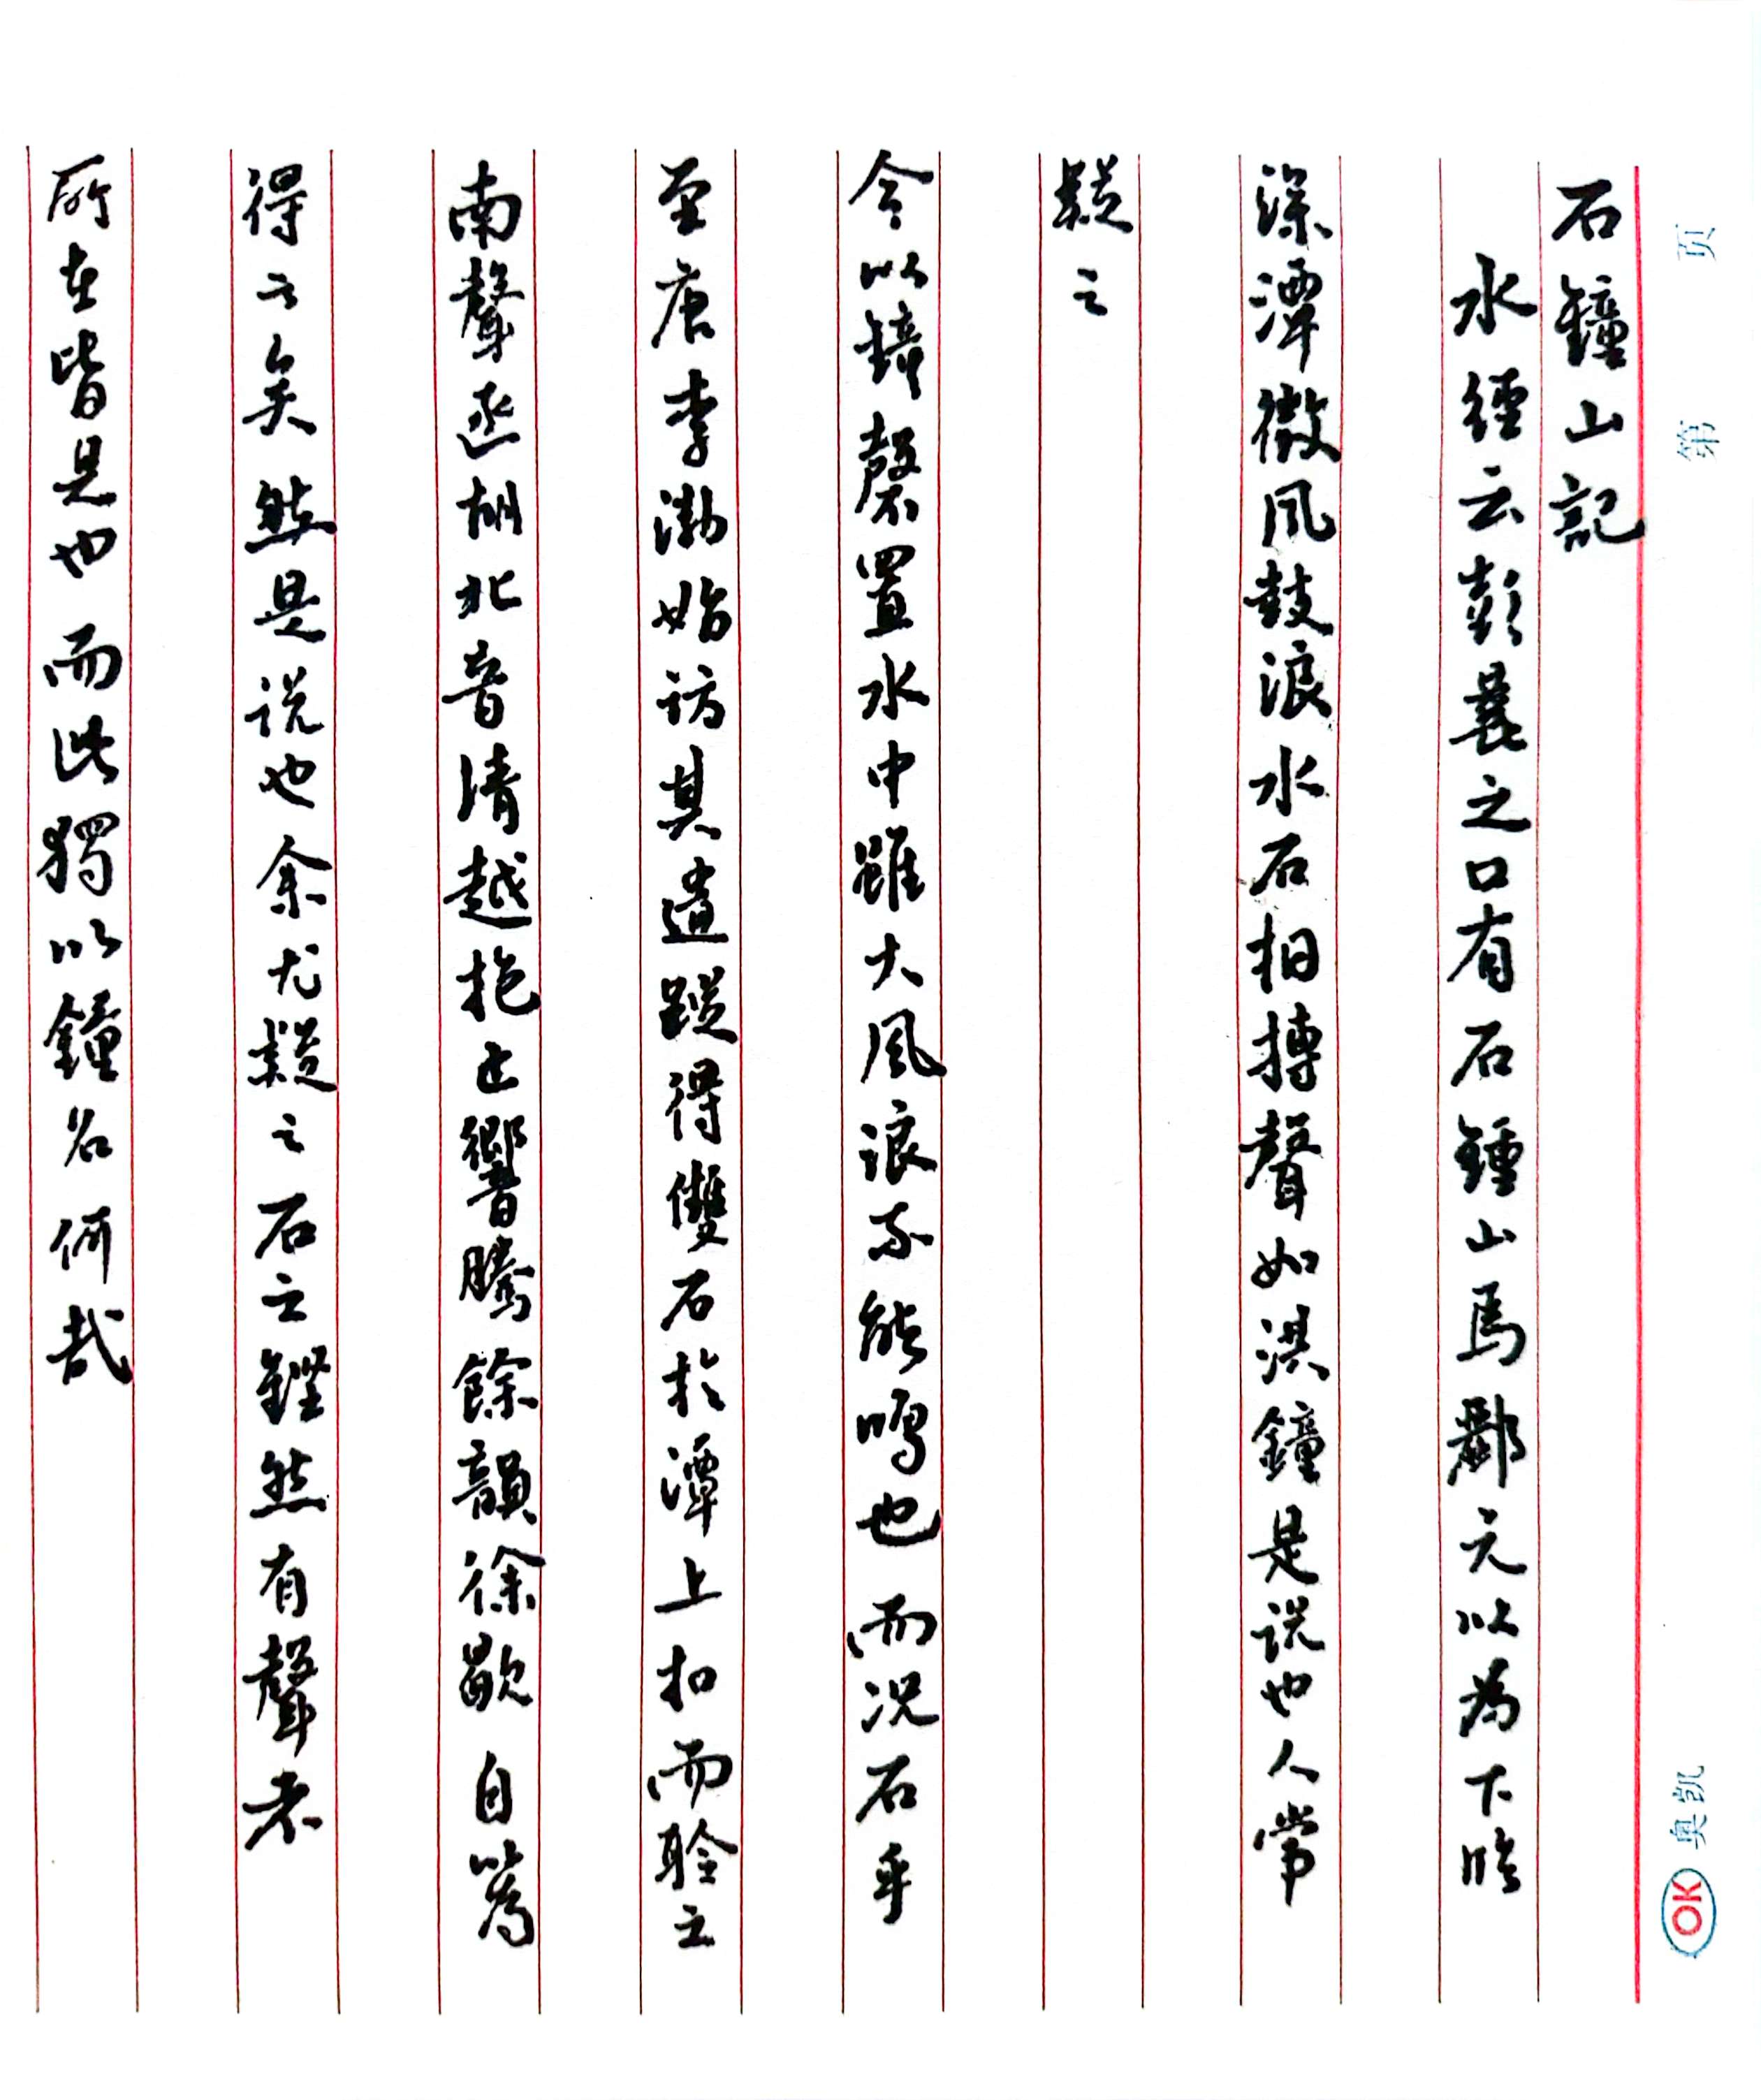 第 页
OK 奥凯
石鐘山記
水經云彭蠡之口有石鍾山焉酈元以為下臨
深潭微風鼓浪水石相搏聲如洪鐘是說也人常
疑之
今以鐘磬置水中雖大風浪不能鳴也而况石乎
至唐李渤始訪其遺蹤得雙石於潭上扣而聆之
南聲函胡北音清越枹止響騰餘韻徐歇自以為
得之矣然是說也余尤疑之石之鏗然有聲者
所在皆是也而此獨以鐘名何哉